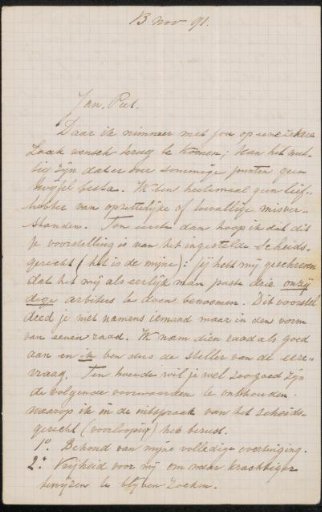 13 Nov 91.
Jan Piet.
Daar ik nimmer met jou op eene zekere
zaak wensch terug te komen, kan het nut-
tig zijn dat er over sommige punten geen
twijfel besta. Ik ben heelemaal geen lief-
hebber van opzettelijke of toevallige misver-
standen. Ten eerste dan hoop ik dat dit
je voorstelling is van het ingestelde scheids-
gerecht (het is de mijne): jij hebt mij geschreven
dat het mij als eerlijk man paste drie onzij
dige arbiters te doen benoemen. Dit voorstel
deed je niet namens iemand maar in den vorm
van eenen raad. Ik nam dien raad als goed
aan en ik ben dus de steller van de eere-
vraag. Ten tweede wil je wel zoo goed zijn
de volgende voorwaarden te onthouden
waarop ik in de uitspraak van het scheids-
gerecht (voorloopig) heb berust.
1o. Behoud van mijne volledige overtuiging.
2o. Vrijheid voor mij om naar krachtiger
bewijzen te blijven zoeken.